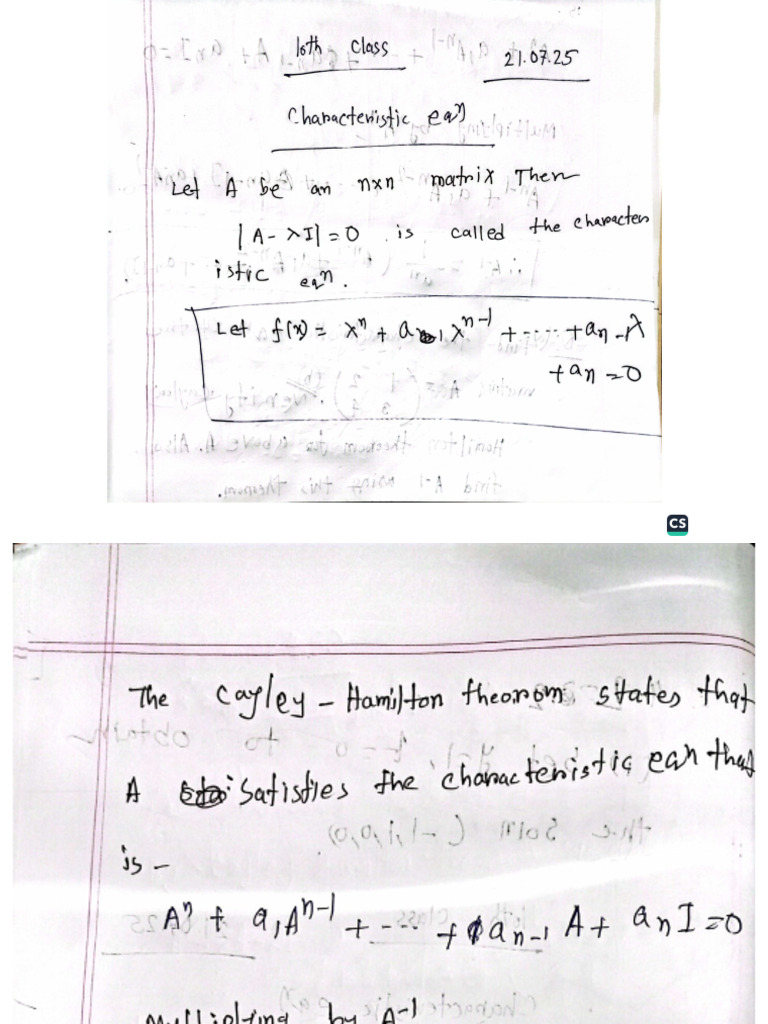 10th class 21.07.25
Characteristic eqn
Let A be an n×n matrix Then
|A - λI| = 0 is called the character
istic eqn.
Let f(x) = λⁿ + a₁ λⁿ⁻¹ + ---- + aₙ₋₁ λ
+ aₙ = 0
CS
The Cayley - Hamilton theorem states that
A satisfies the characteristic eqn that
is -
Aⁿ + a₁Aⁿ⁻¹ + ---- + aₙ₋₁ A + aₙ I = 0
Multiplying by A⁻¹